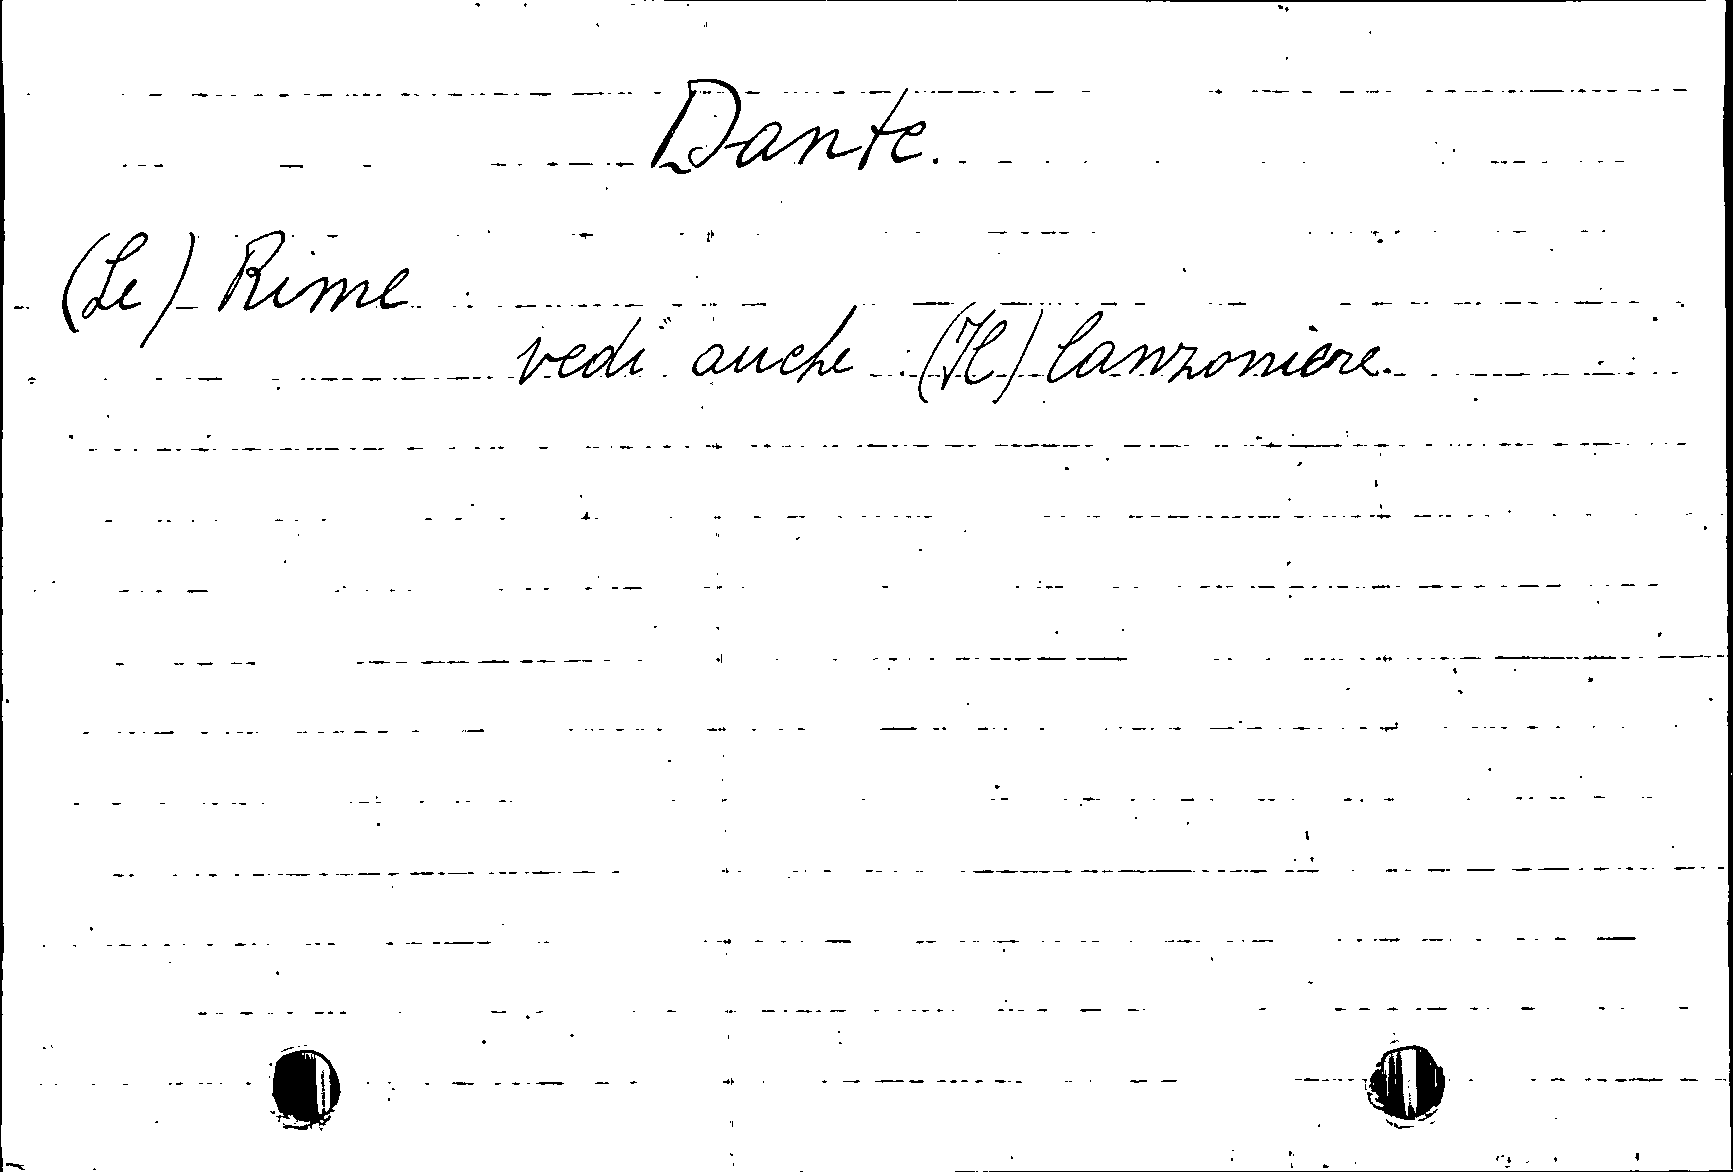 Dante.
(Le) Rime
vedi anche (Il) Canzoniere.